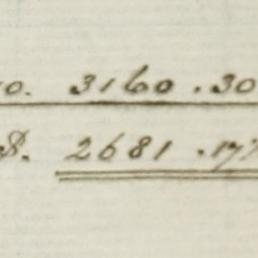 0. 3160.30
$. 2681.17